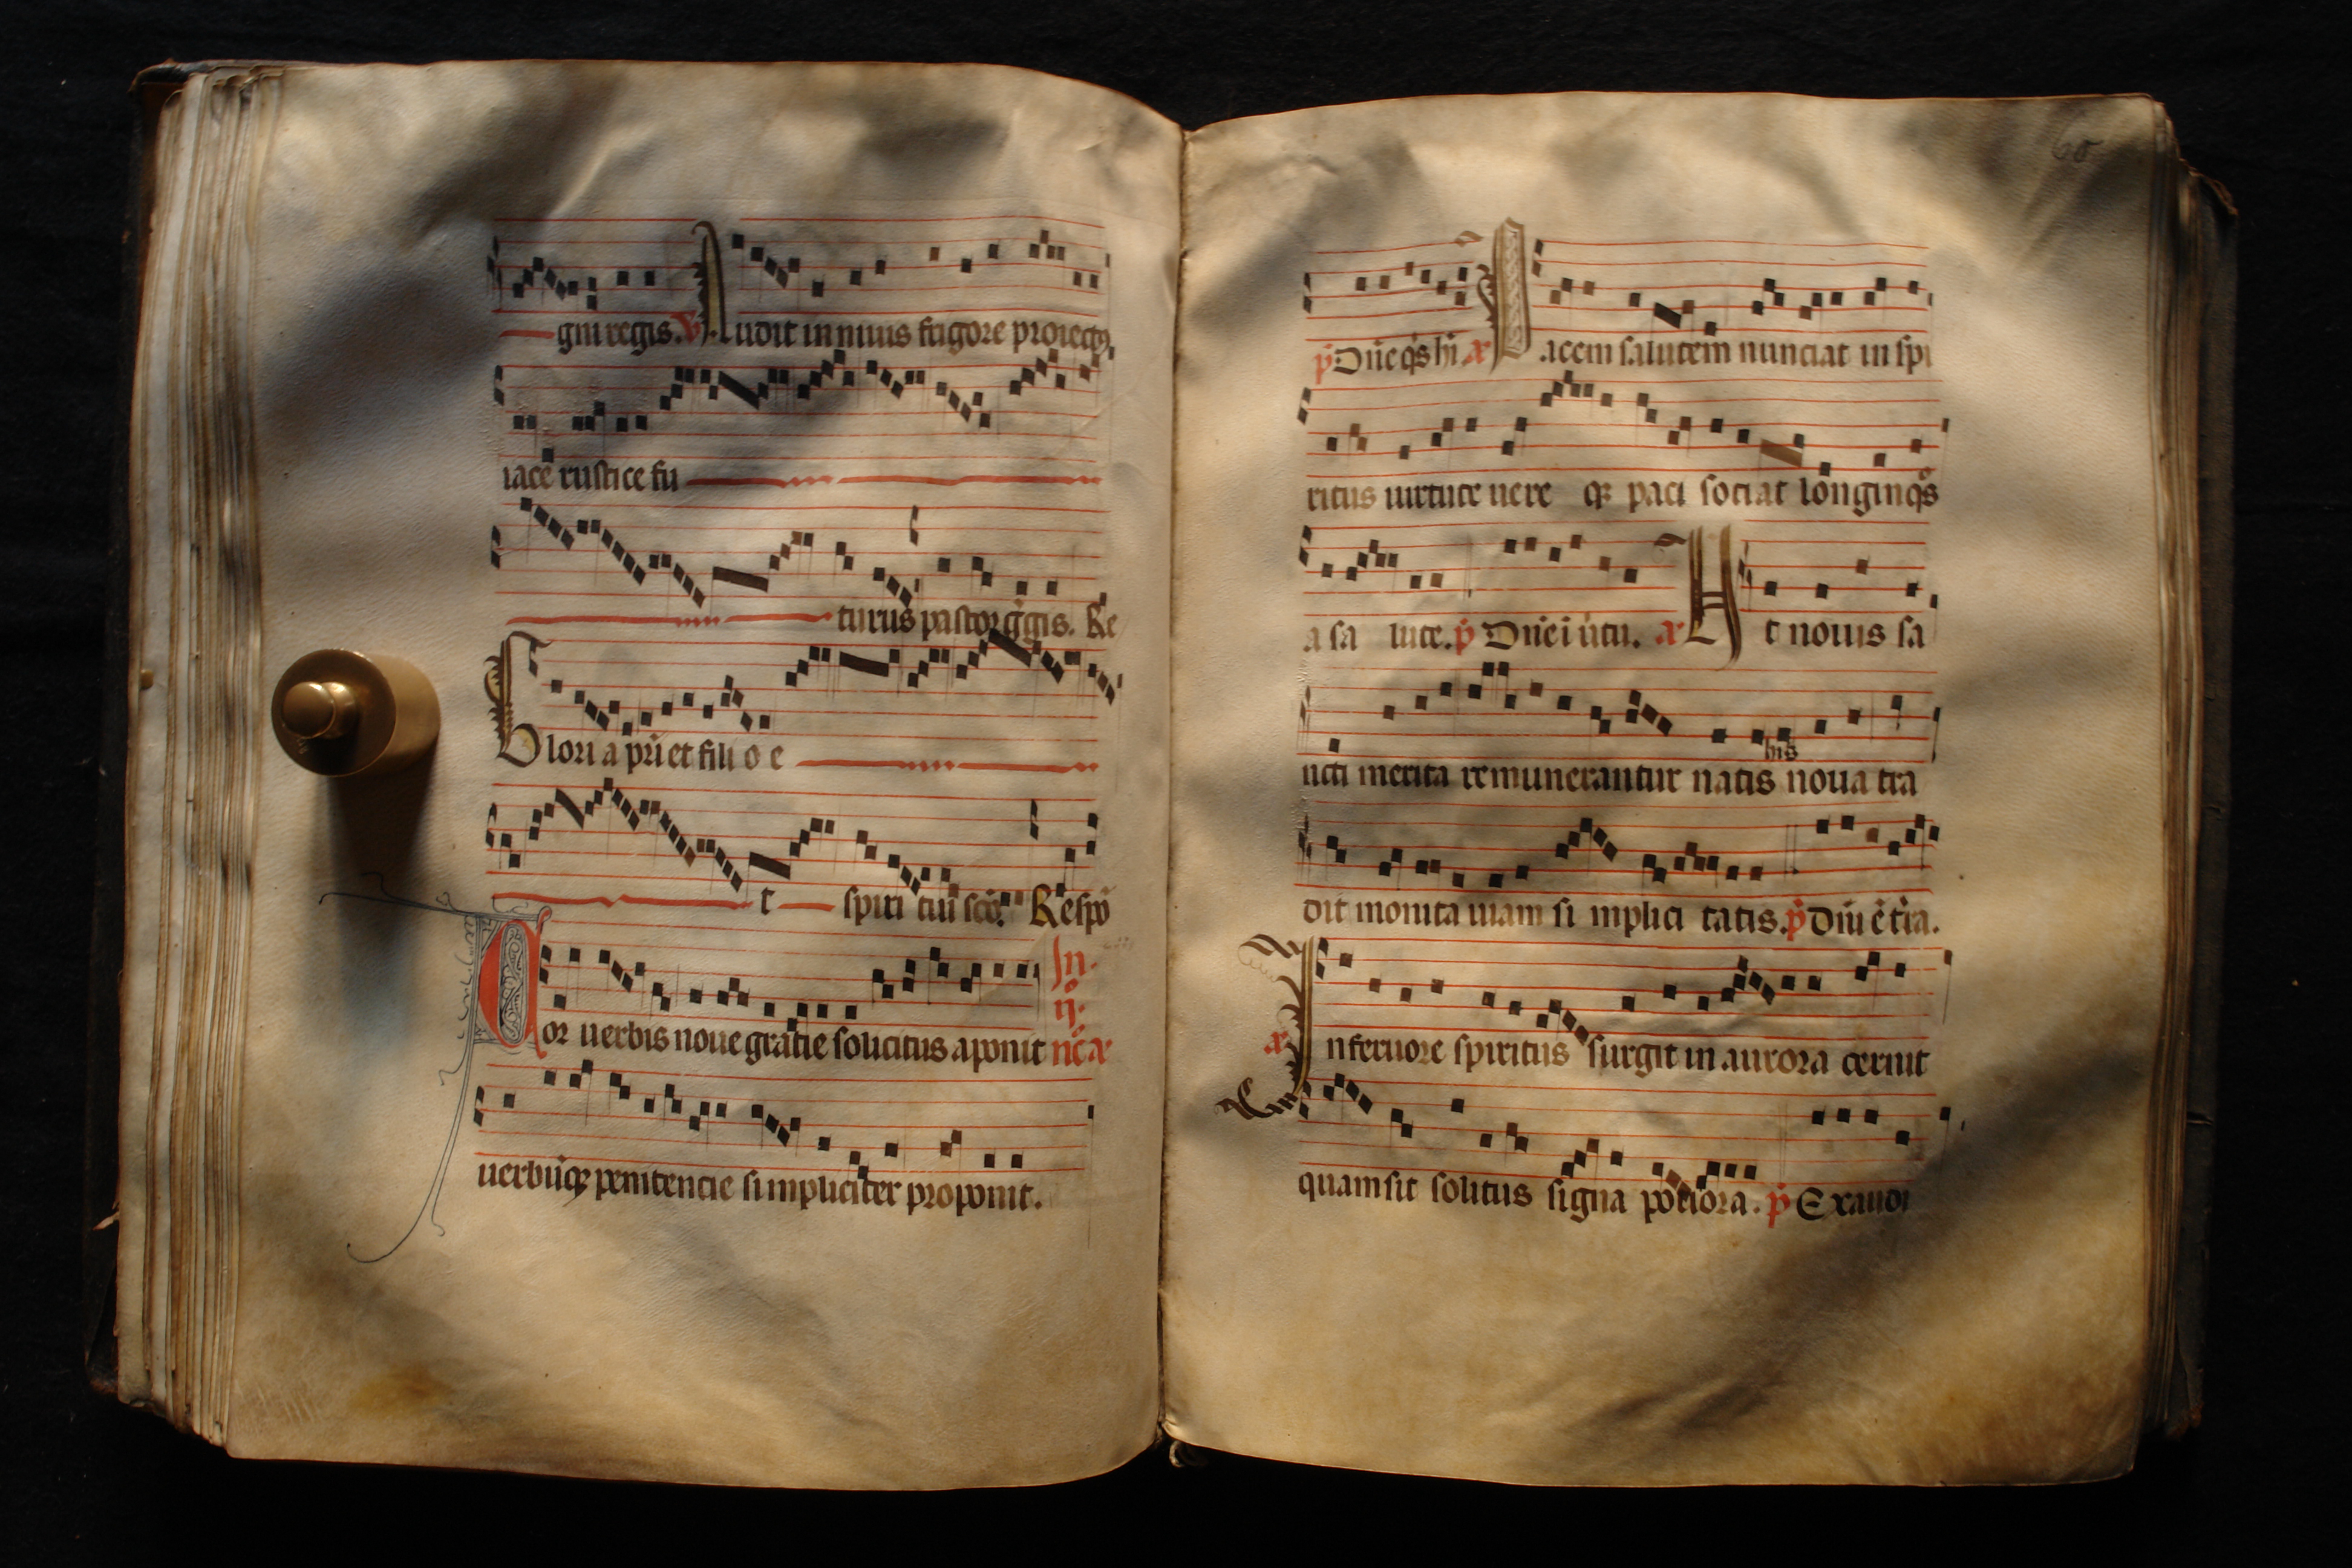 gni regis. ℣. Audit in niuis frigore proiectꝯ,
iace rustice fu
turus pastor gͥgis. Re
Gloria pr̄i et fili o e
t spiri tui scō. Respō
In.
ij.
Cor uerbis noue gratie solicitus aponit nͨ æ
uerbūqꝫ penitencie si mpliciter proponit.
60
p̄ Dn̄e qͥs hī æ Pacem salutem nunciat in spi
ritus uirtute uere qꝫ paci sociat longinqͦs
a sa lute. p̄ Dn̄e i ūtu. æ Ut nouis sa
ncti merita remunerantur natis his noua tra
dit monita uiam si mplici tatis. p̄ Dn̄i ē t̄ra.
æ In feruore spiritus surgit in aurora cernit
quam sit solitus signa potiora. p̄ Exaudi